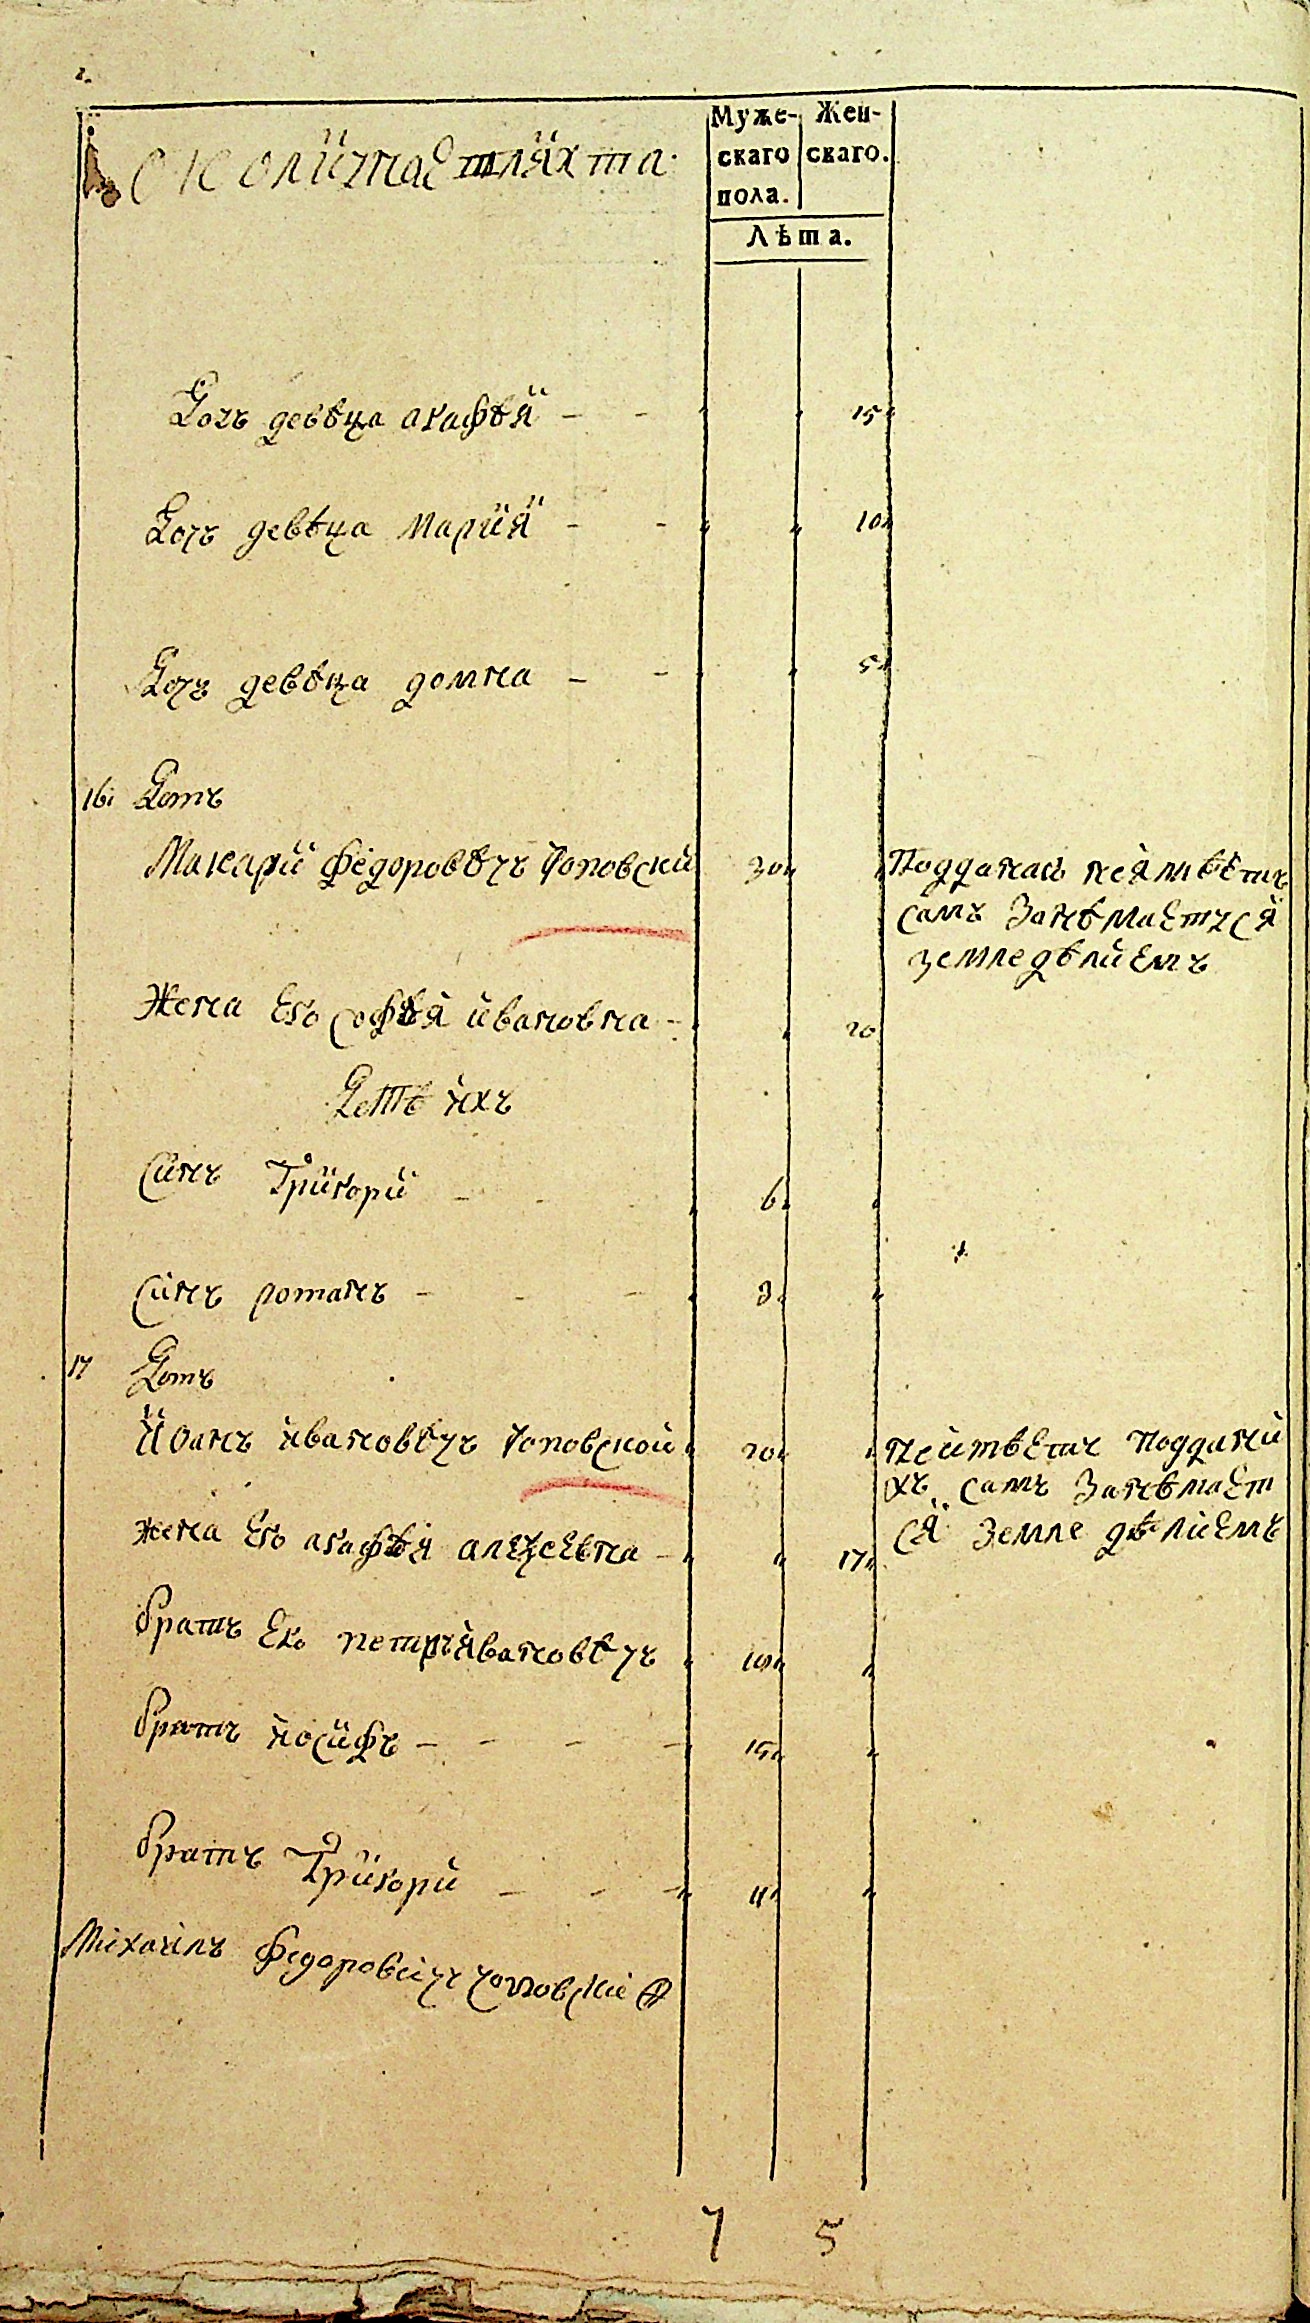 околична шляхта.
Муже-
скаго
пола.
Жен-
скаго.
Лѣта.
Дочъ девѣца агафѣя - - 15
Дочъ девѣца марiия - - 10
Дочъ девѣца домна - - 5
16 Домъ
Макарий федоровѣчъ Чоповский 30
Подданих неймѣетъ
самъ Занѣмаетъся
земледѣлиемъ
Жена Его софѣя ивановна - 20
Детѣ ихъ
Синъ Григорий - - 6
Синъ романъ - - - 3
17 Домъ
Иоанъ ивановѣчъ Чоповской 20
неймѣетъ подданий
хъ самъ Занѣмает
ся Земле дѣлиемъ
жена Его агафѣя алеѯеевна - 17
братъ Его петръ ивановѣчъ 18
братъ иосифъ - - - - 15
братъ Григорий - - - 11
Мiхаилъ Федоровичъ Чоповскiй
7 5